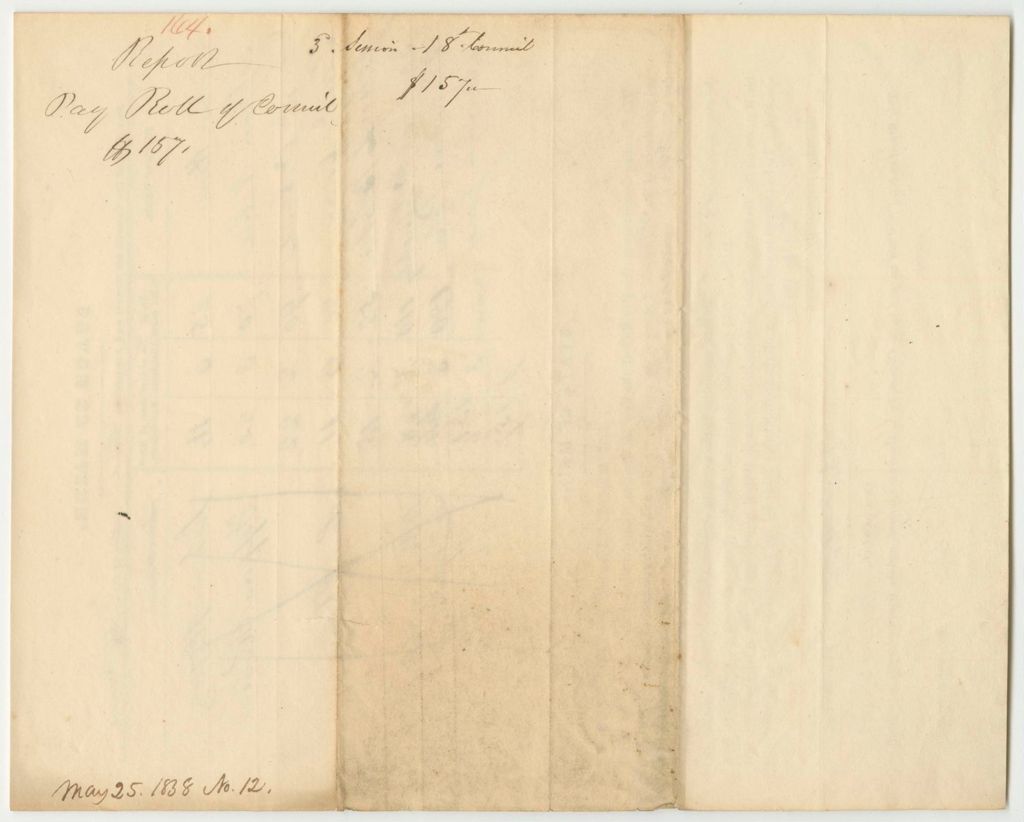 164.
Report
Pay Roll of Council
$157.
5. Session - 18th Council
$157 —
May 25. 1838 No. 12.